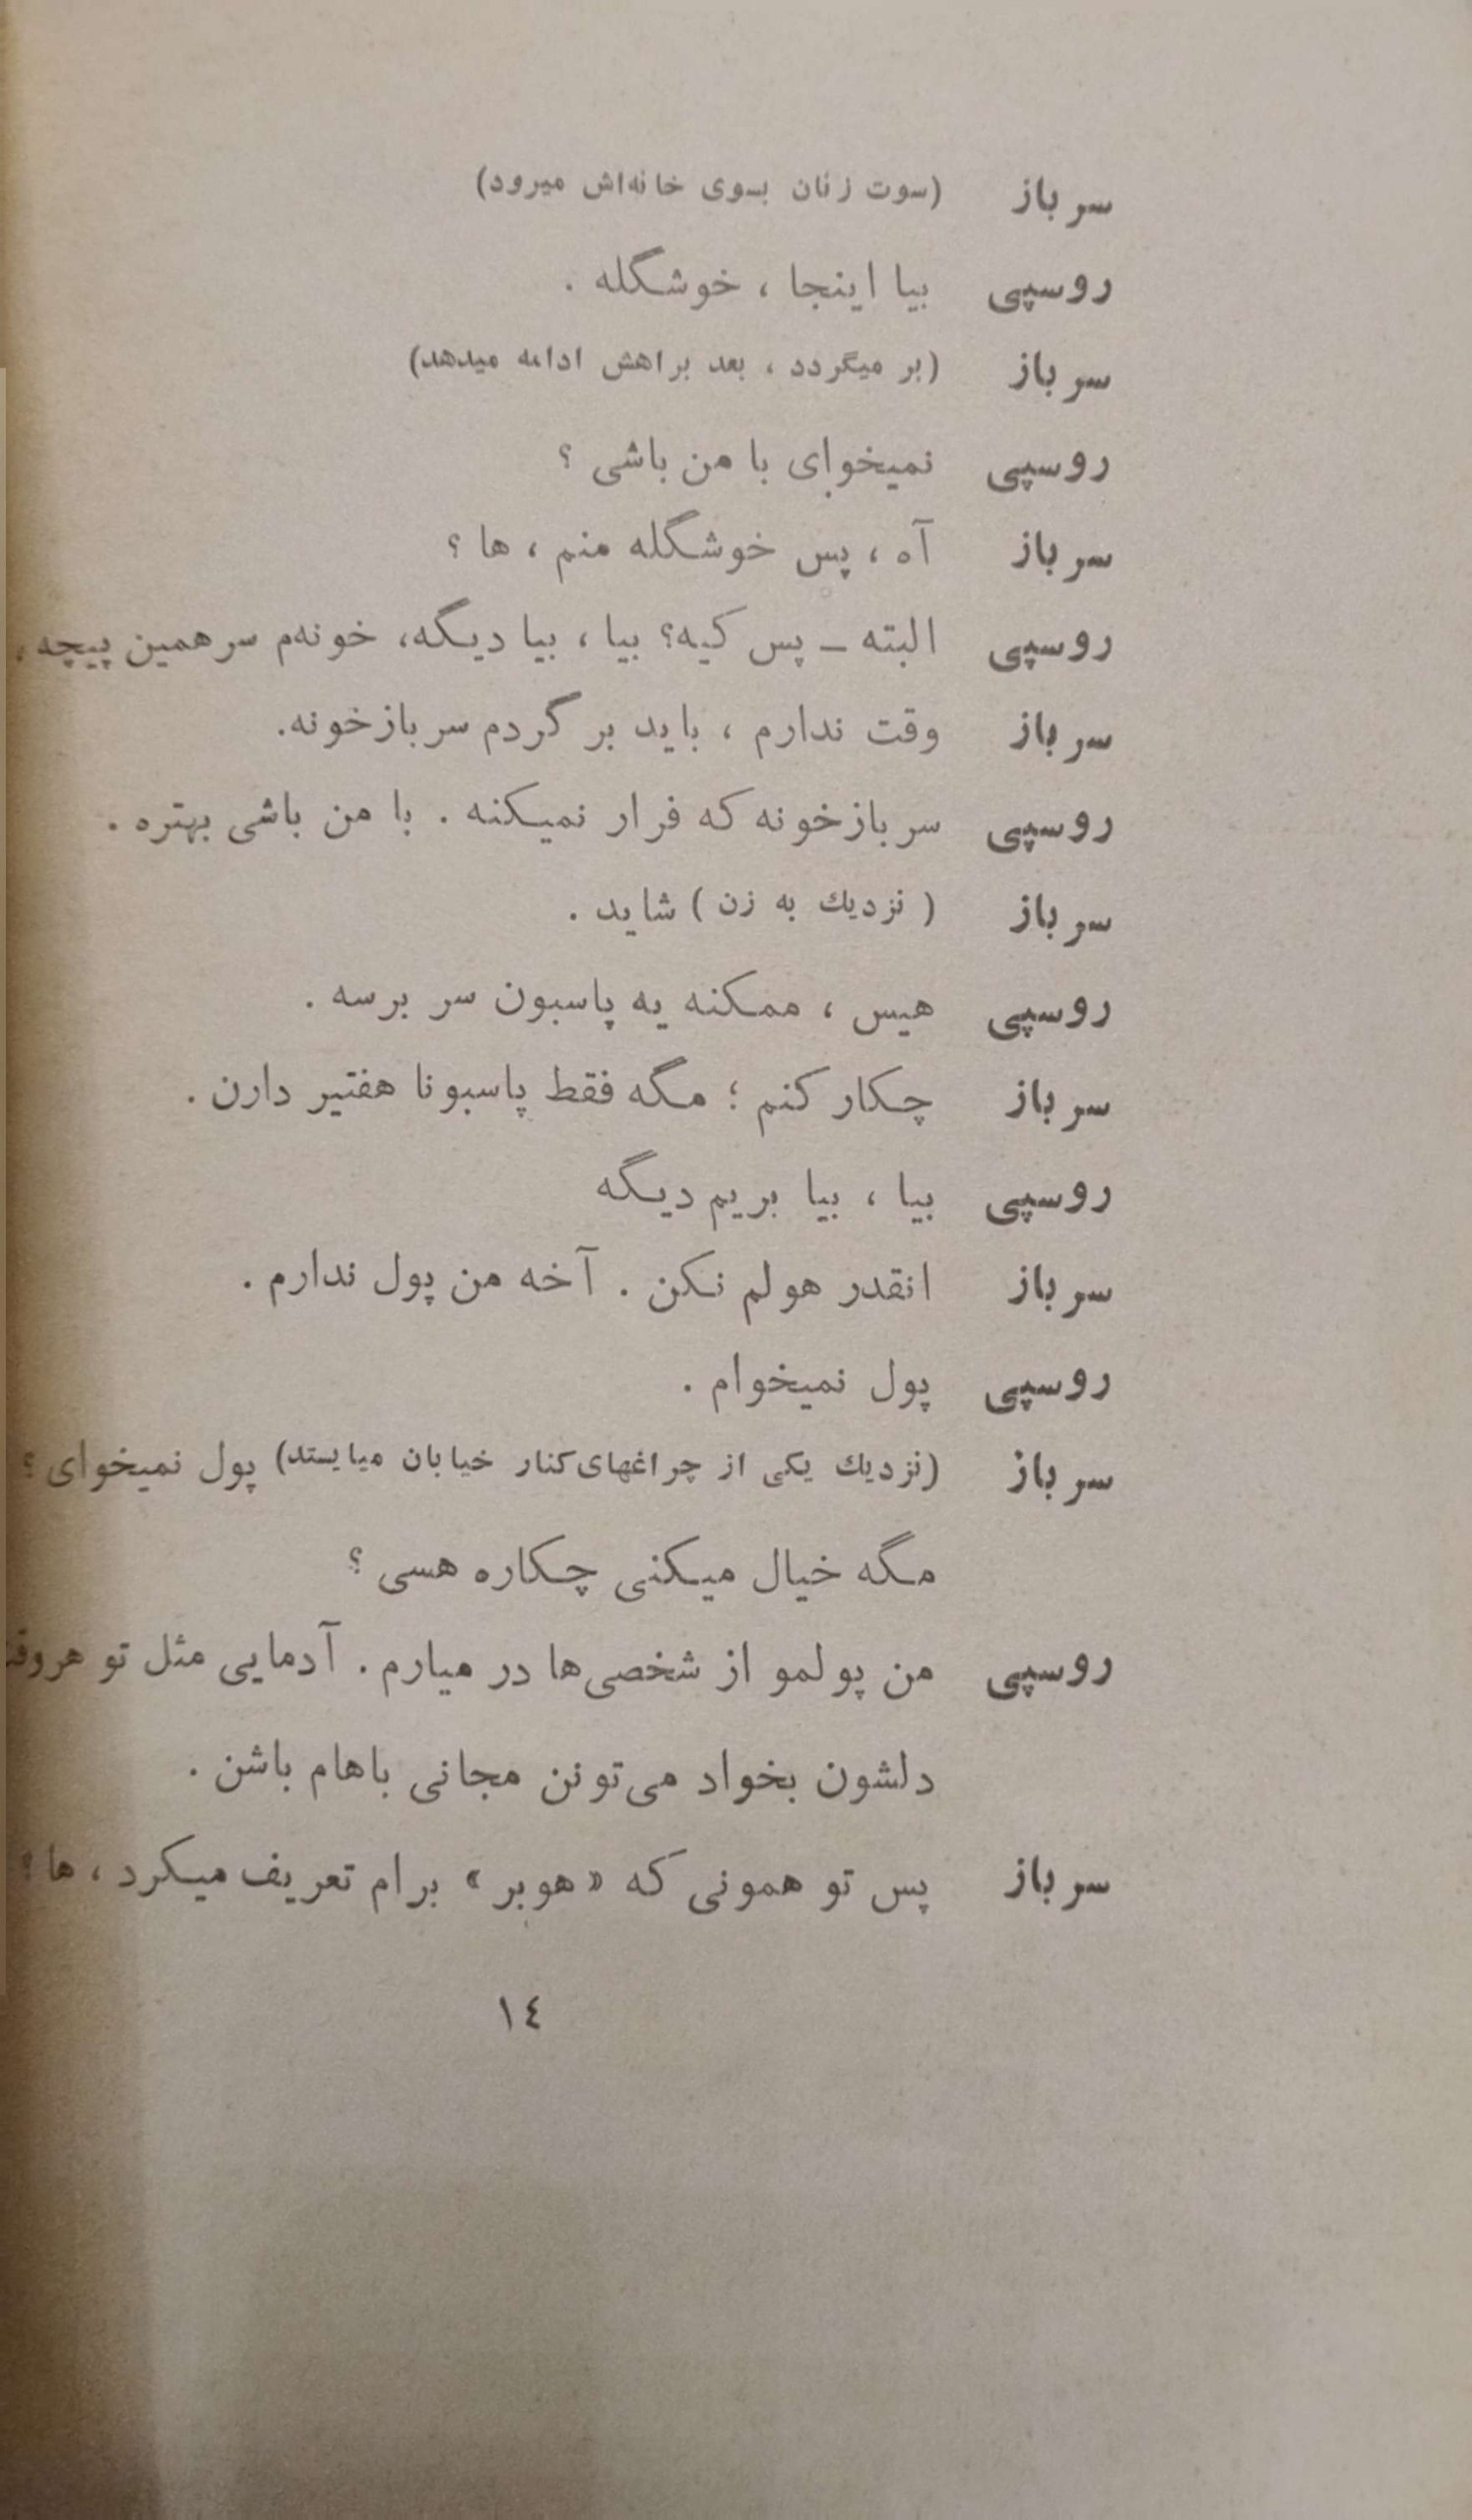 سرباز (سوت زنان بسوی خانه‌اش میرود)
روسپی بیا اینجا ، خوشگله .
سرباز (بر میگردد ، بعد براهش ادامه میدهد)
روسپی نمیخوای با من باشی ؟
سرباز آه ، پس خوشگله منم ، ها ؟
روسپی البته ــ پس کیه؟ بیا ، بیا دیگه، خونه‌م سرهمین پیچه .
سرباز وقت ندارم ، باید بر گردم سربازخونه.
روسپی سربازخونه که فرار نمیکنه . با من باشی بهتره .
سرباز ( نزدیك به زن ) شاید .
روسپی هیس ، ممکنه یه پاسبون سر برسه .
سرباز چکار کنم ؛ مگه فقط پاسبونا هفتیر دارن .
روسپی بیا ، بیا بریم دیگه
سرباز انقدر هولم نکن . آخه من پول ندارم .
روسپی پول نمیخوام .
سرباز (نزدیك یکی از چراغهای کنار خیابان میایستد) پول نمیخوای ؟
مگه خیال میکنی چکاره هسی ؟
روسپی من پولمو از شخصی‌ها در میارم . آدمایی مثل تو
دلشون بخواد می‌تونن مجانی باهام باشن .
سرباز پس تو همونی که «هوبر» برام تعریف میکرد ، ها ؟
١٤